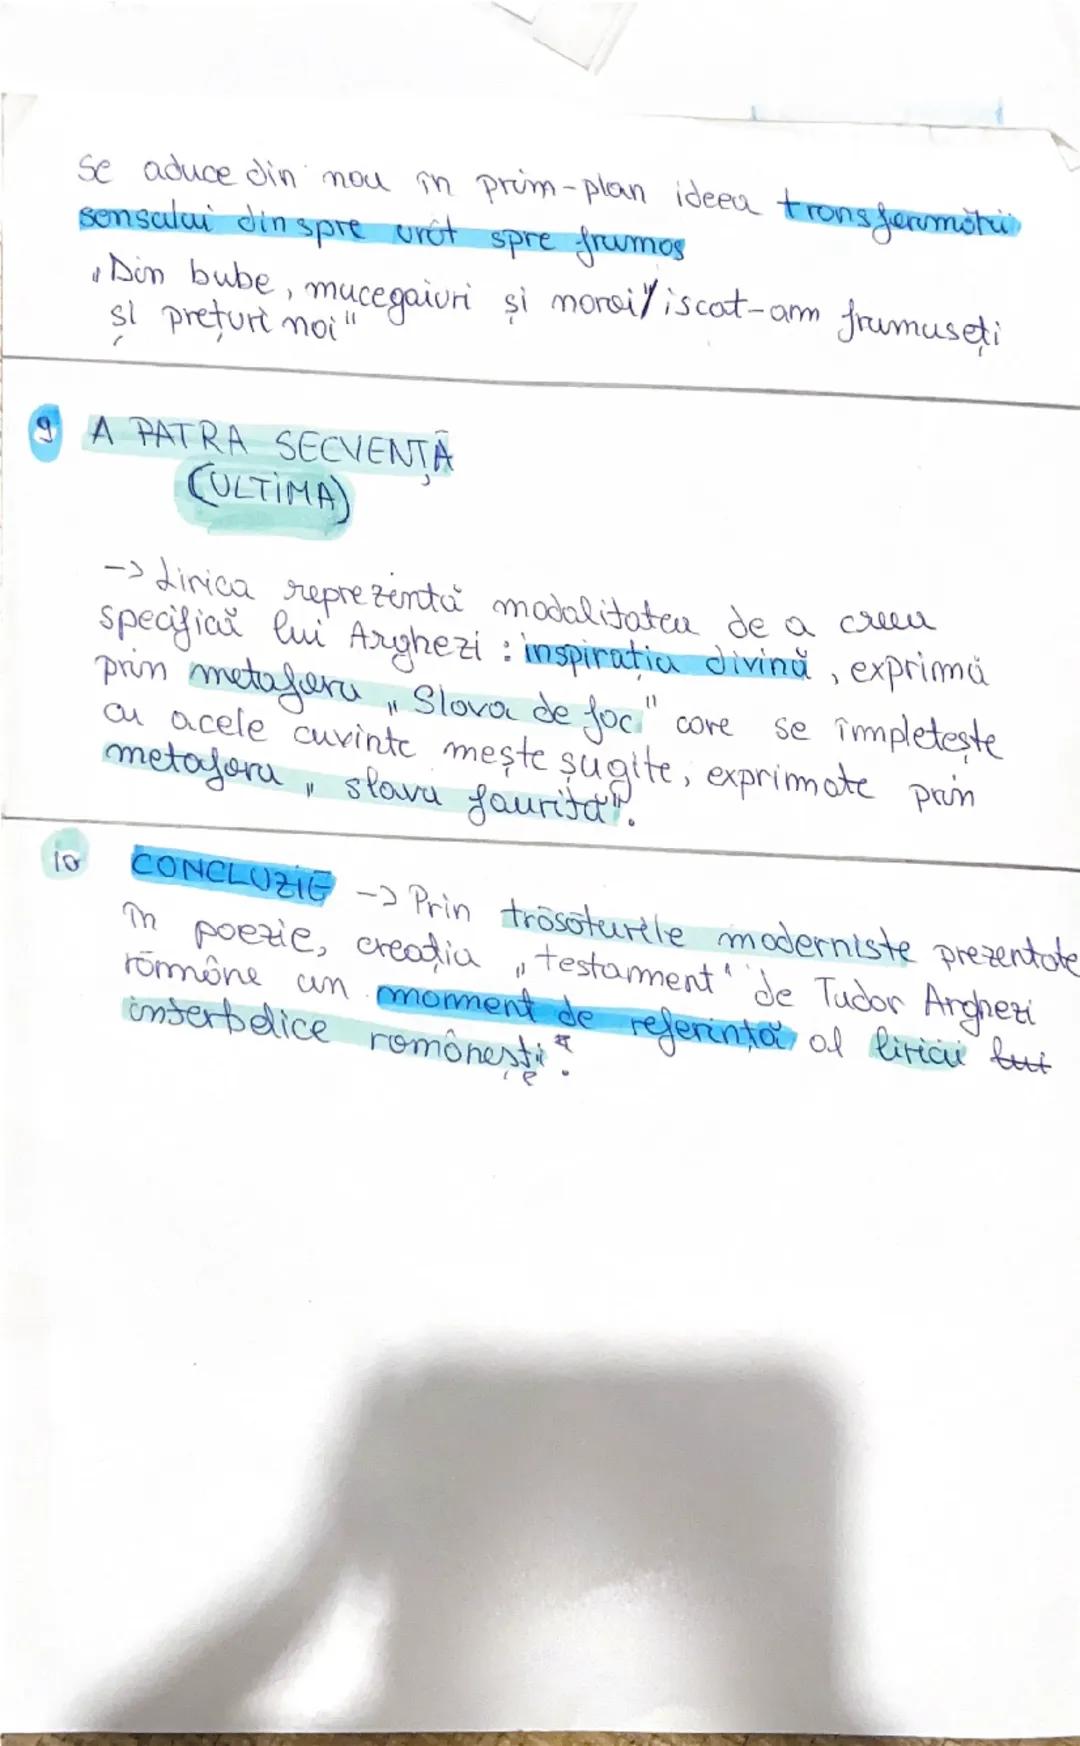 Se aduce din nou în prim-plan ideea transformării
sensului dinspre urât spre frumos
„Din bube, mucegaiuri și noroi/iscat-am frumuseți
și prețuri noi"
9 A PATRA SECVENȚĂ
(ULTIMA)
-> Lirica reprezentă modalitatea de a creea
specifică lui Arghezi : inspirația divină, exprimă
prin metafora „Slova de foc" care se împletește
cu acele cuvinte meșteșugite, exprimate prin
metafora „slava faurita".
10 CONCLUZIE -> Prin trăsăturile moderniste prezentate
în poezie, creația „testament" de Tudor Arghezi
rămâne un moment de referință al liricii lui
interbelice românești".